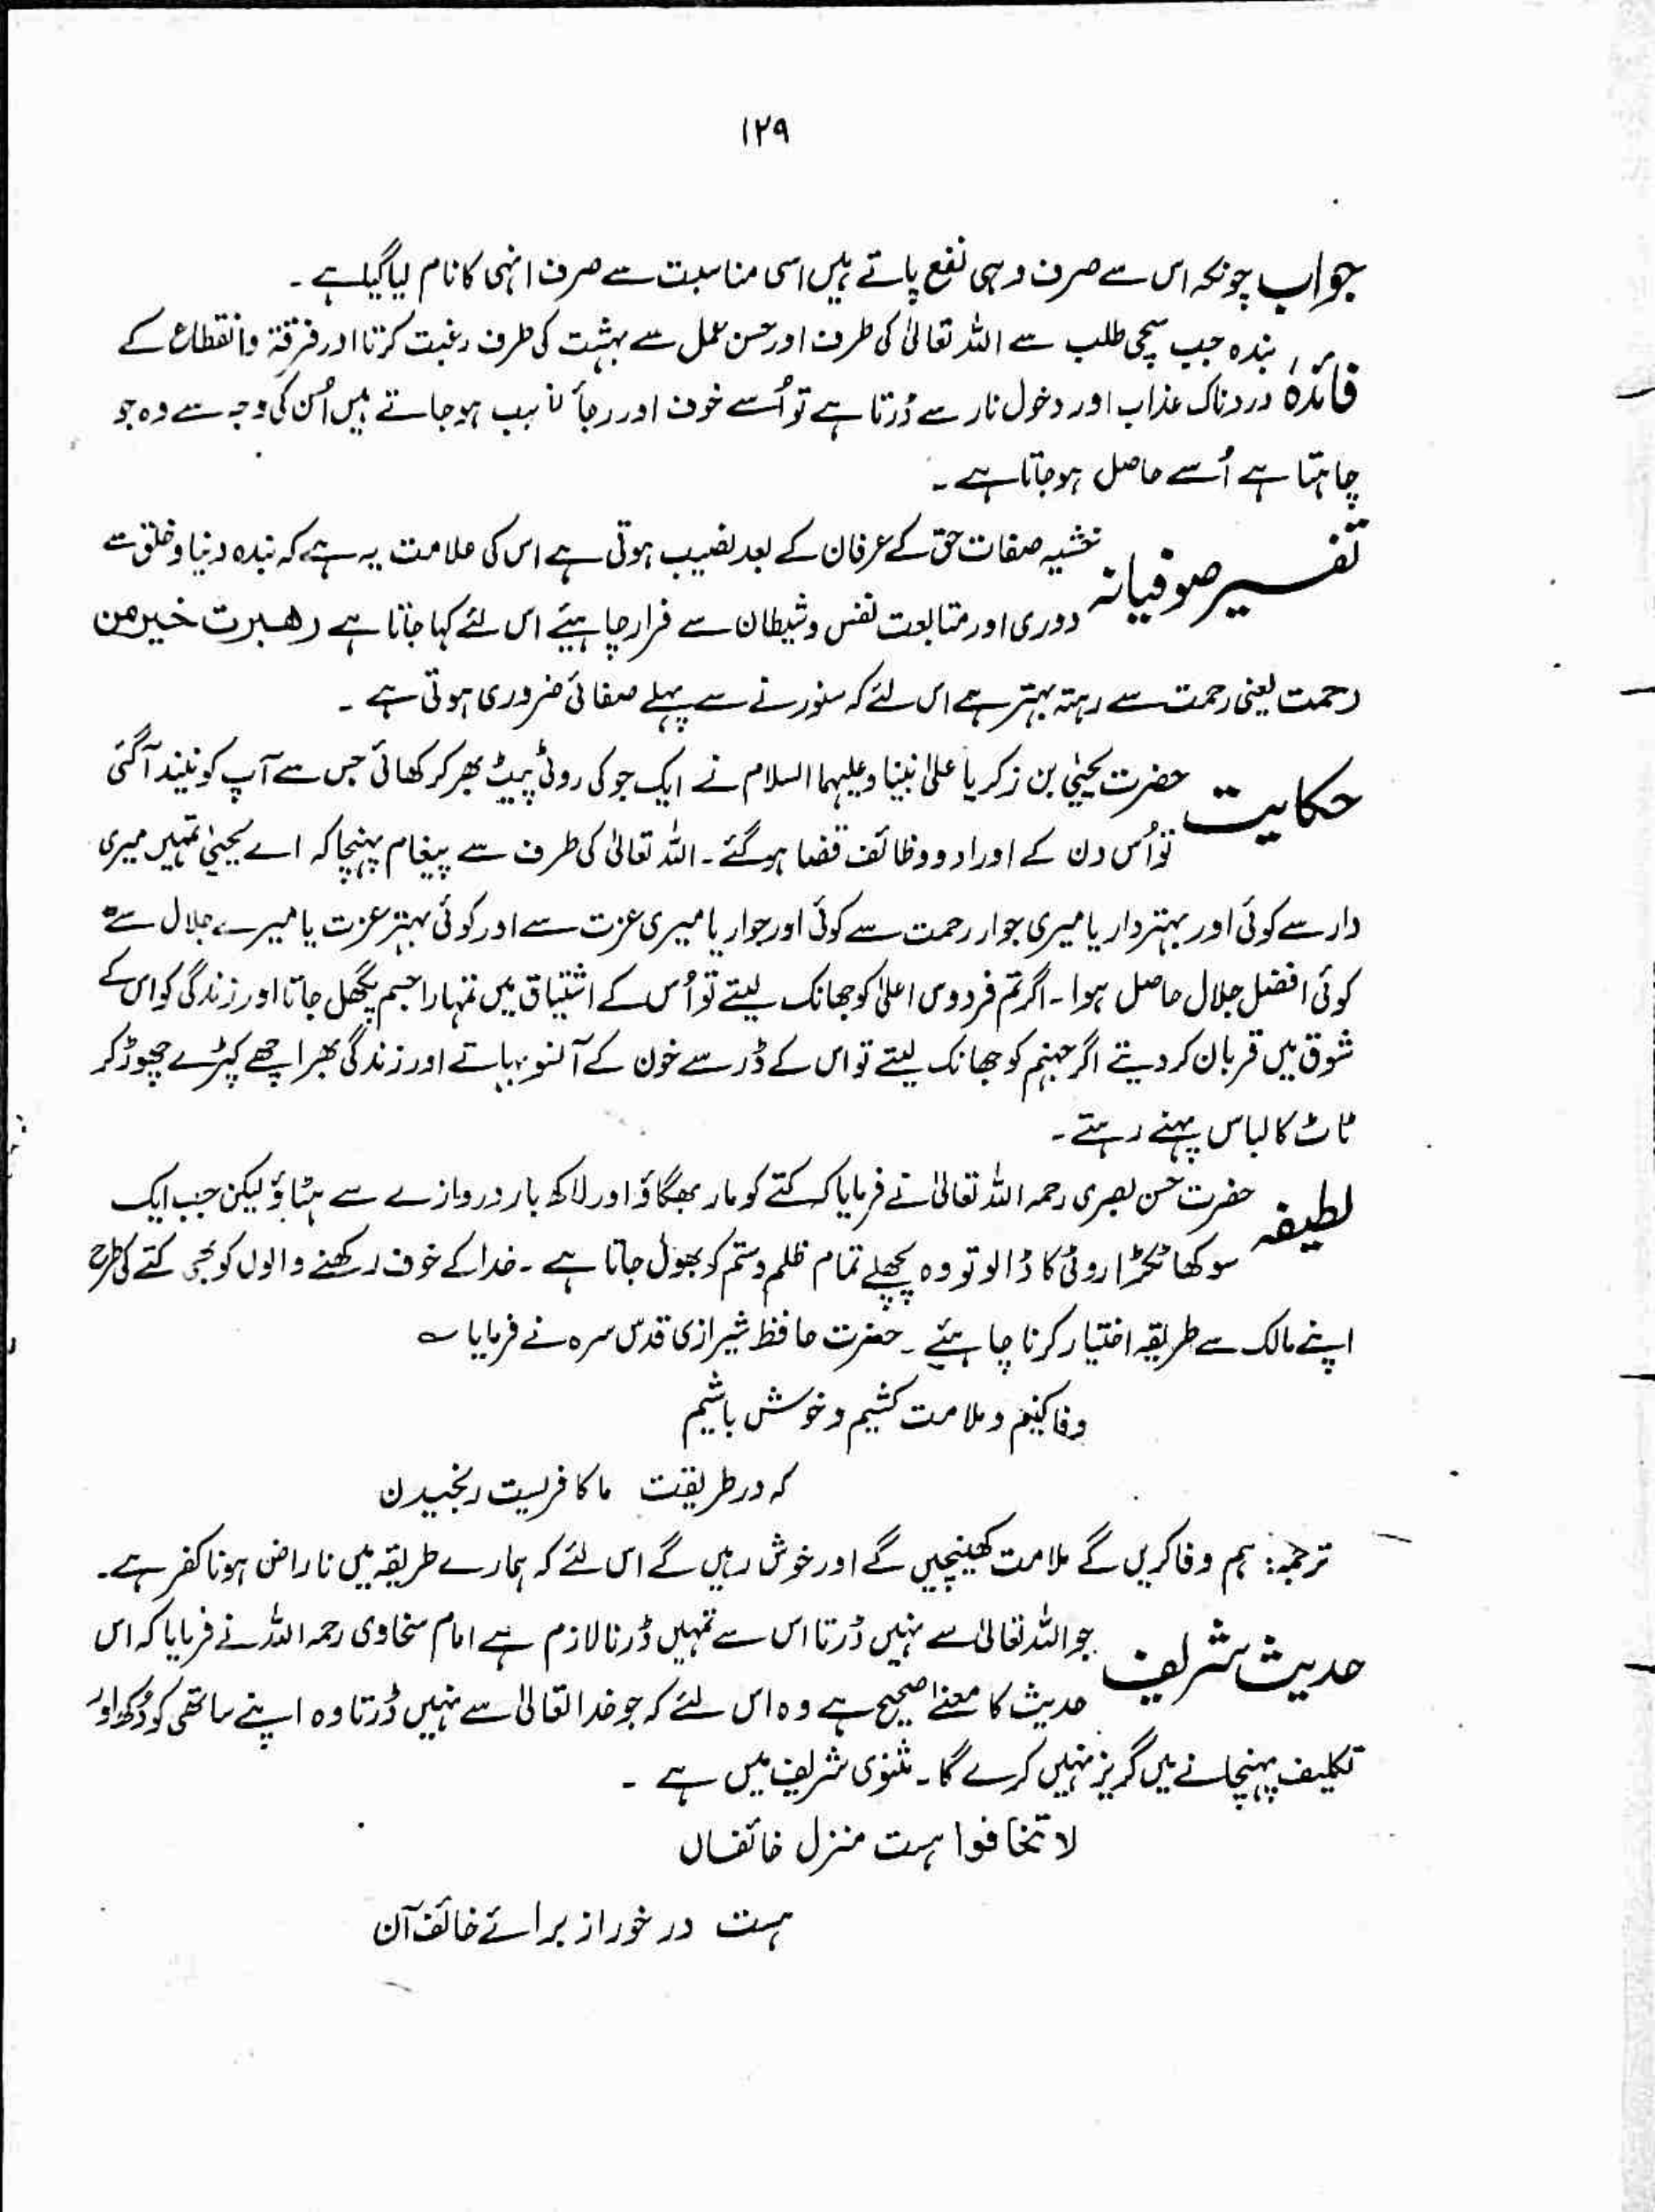 ۱۲۹
جواب چونکہ اس سے صرف وہی نفع پاتے ہیں اسی مناسبت سے صرف انہی کا نام لیا گیا ہے ۔
بندہ جب سچی طلب سے اللہ تعالیٰ کی طرف اور حسن عمل سے بہشت کی طرف رغبت کرتا اور فرقۃ وانقطاع کے
فائدہ دردناک عذاب اور دخول نار سے ڈرتا ہے تو اُسے خوف اور رجأ نصیب ہو جاتے ہیں اُس کی وجہ سے وہ جو
چاہتا ہے اُسے حاصل ہو جاتا ہے ۔
تفسیر صوفیانہ خشیہ صفات حق کے عرفان کے بعد نصیب ہوتی ہے اس کی علامت یہ ہے کہ بندہ دنیا و خلق سے
دوری اور متابعت نفس وشیطان سے فرار چاہیئے اس لئے کہا جاتا ہے رھبرت خیر من
رحمت یعنی رحمت سے رہتہ بہتر ہے اس لئے کہ سنورنے سے پہلے صفائی ضروری ہوتی ہے ۔
حکایت حضرت یحییٰ بن زکریا علیٰ نبینا وعلیہما السلام نے ایک جو کی روٹی پیٹ بھر کر کھائی جس سے آپ کو نیند آگئی
تو اُس دن کے اوراد و وظائف قضا ہو گئے ۔ اللہ تعالیٰ کی طرف سے پیغام پہنچا کہ اے یحییٰ تمہیں میری
دار سے کوئی اور بہتر دار یا میری جوار رحمت سے کوئی اور جوار یا میری عزت سے اور کوئی بہتر عزت یا میرے جلال سے
کوئی افضل جلال حاصل ہوا ۔ اگر تم فردوس اعلیٰ کو جھانک لیتے تو اُس کے اشتیاق میں تمہارا جسم پگھل جاتا اور زندگی کو اس کے
شوق میں قربان کر دیتے اگر جہنم کو جھانک لیتے تو اس کے ڈر سے خون کے آنسو بہاتے اور زندگی بھر اچھے کپڑے چھوڑ کر
ٹاٹ کا لباس پہنے رہتے ۔
لطیفہ حضرت حسن بصری رحمہ اللہ تعالیٰ نے فرمایا کہ کتے کو مار بھگاؤ اور لاکھ بار دروازے سے ہٹاؤ لیکن جب ایک
سوکھا ٹکڑا روٹی کا ڈالو تو وہ پچھلے تمام ظلم و ستم کو بھول جاتا ہے ۔ خدا کے خوف رکھنے والوں کو بھی کتے کی طرح
اپنے مالک سے طریقہ اختیار کرنا چاہئیے ۔ حضرت حافظ شیرازی قدس سرہ نے فرمایا ؎
وفا کنیم و ملامت کشیم و خوش باشیم
کہ در طریقت ما کافریست رنجیدن
ترجمہ: ہم وفا کریں گے ملامت کھینچیں گے اور خوش رہیں گے اس لئے کہ ہمارے طریقہ میں ناراض ہونا کفر ہے ۔
حدیث شریف جو اللہ تعالیٰ سے نہیں ڈرتا اس سے تمہیں ڈرنا لازم ہے امام سخاوی رحمہ اللہ نے فرمایا کہ اس
حدیث کا معنے صحیح ہے وہ اس لئے کہ جو خدا تعالیٰ سے نہیں ڈرتا وہ اپنے ساتھی کو دُکھ اور
تکلیف پہنچانے میں گریز نہیں کرے گا ۔ مثنوی شریف میں ہے ۔
لا تخافوا ہست منزل خائفاں
ہست در خور از برائے خائف آن